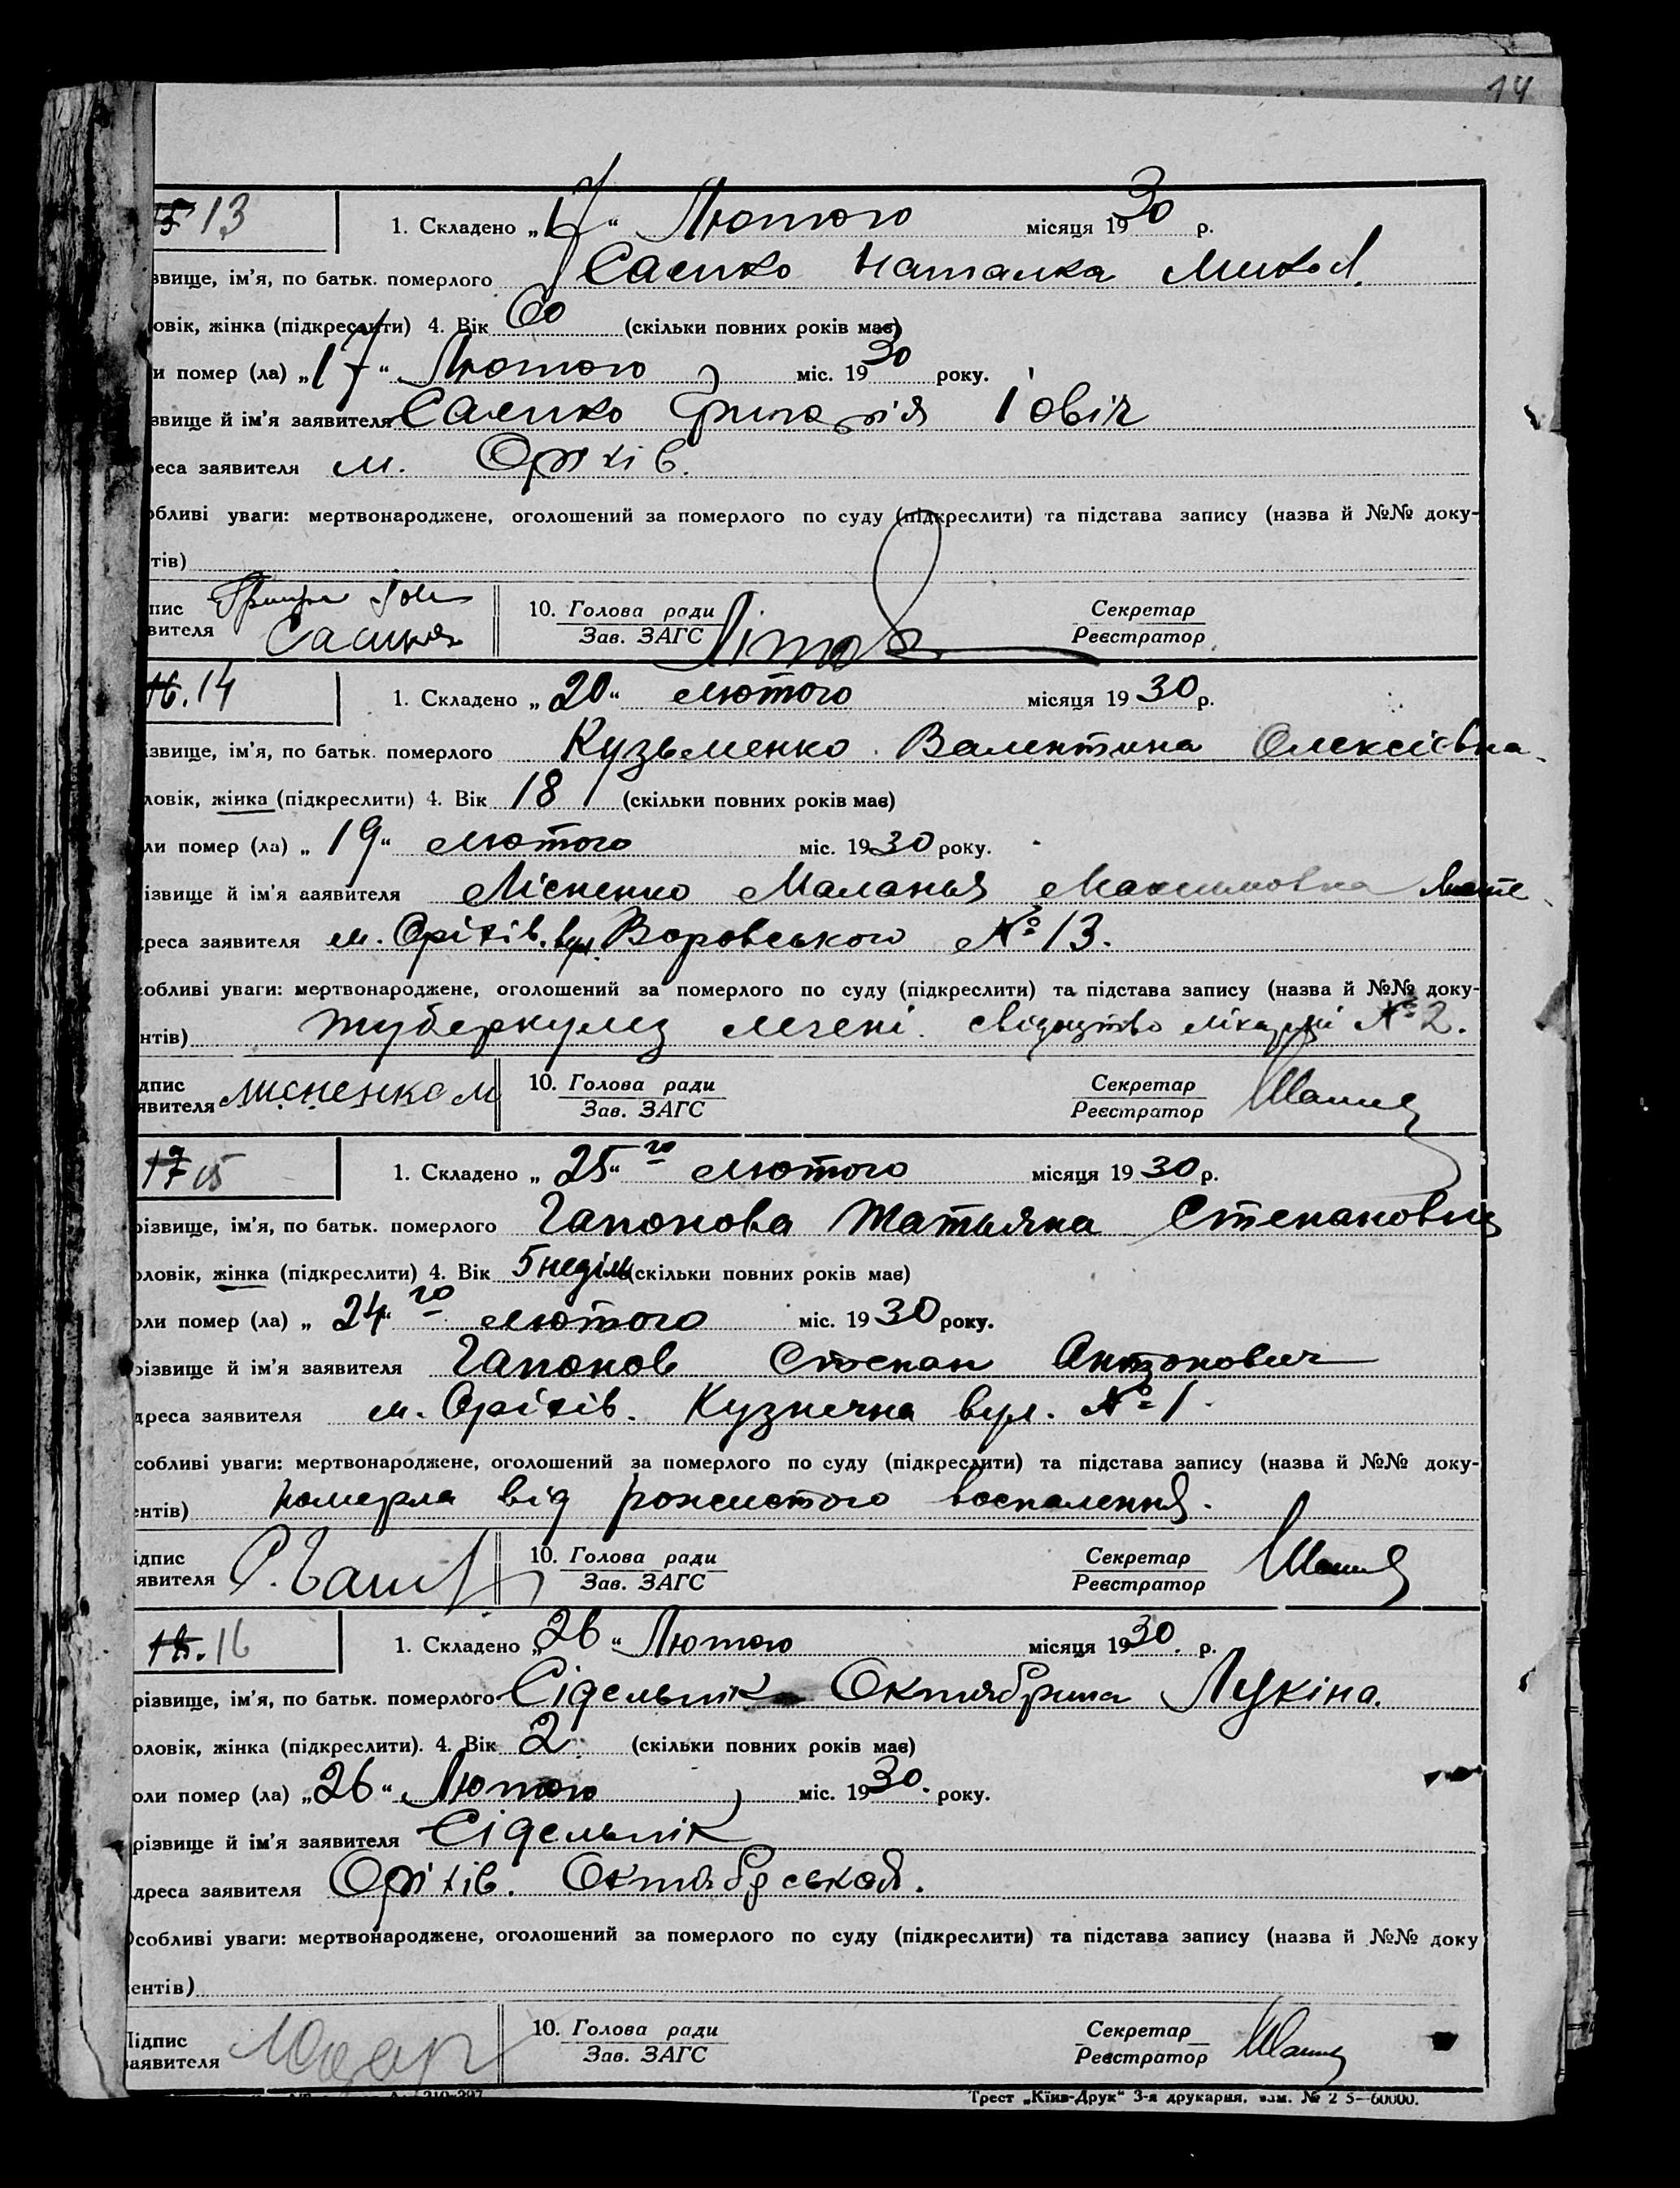 14
15 13
1. Складено „17“ Лютого місяця 1930 р.
звище, ім'я, по батьк. померлого Саєнко Наталка Микол.
овік, жінка (підкреслити) 4. Вік 60 (скільки повних років має)
и помер (ла) „17“ Лютого міс. 1930 року.
звище й ім'я заявителя Саєнко Григорія Іовіч
реса заявителя м. Оріхів.
обливі уваги: мертвонароджене, оголошений за померлого по суду (підкреслити) та підстава запису (назва й №№ доку-
тів)
пис
вителя
10. Голова ради
Зав. ЗАГС
Секретар
Реєстратор
16. 14
1. Складено „20“ лютого місяця 1930 р.
ізвище, ім'я, по батьк. померлого Кузьменко Валентина Олексієвна
ловік, жінка (підкреслити) 4. Вік 18 (скільки повних років має)
ли помер (ла) „19“ лютого міс. 1930 року.
ізвище й ім'я заявителя Лісненко Маланья Максимовна
реса заявителя м. Оріхів. вул. Воровського № 13.
обливі уваги: мертвонароджене, оголошений за померлого по суду (підкреслити) та підстава запису (назва й №№ доку-
нтів) туберкулез легені. свідоцтво лікарні № 2.
дпис
явителя лисненко м
10. Голова ради
Зав. ЗАГС
Секретар
Реєстратор
17 15
1. Складено „25“ го лютого місяця 1930 р.
різвище, ім'я, по батьк. померлого Гапонова Татьяна Степановна
оловік, жінка (підкреслити) 4. Вік 5 неділь (скільки повних років має)
оли помер (ла) „24“ го лютого міс. 1930 року.
різвище й ім'я заявителя Гапонов Степан Антонович
дреса заявителя м. Оріхів. Кузнечна вул. № 1.
собливі уваги: мертвонароджене, оголошений за померлого по суду (підкреслити) та підстава запису (назва й №№ доку-
ентів) померла від рожистого воспалення.
ідпис
явителя
10. Голова ради
Зав. ЗАГС
Секретар
Реєстратор
18. 16
1. Складено „26“ Лютого місяця 1930. р.
різвище, ім'я, по батьк. померлого Сідельнік Октябрина Лукіна.
оловік, жінка (підкреслити). 4. Вік 2 (скільки повних років має)
оли помер (ла) „26“ Лютого міс. 1930. року.
різвище й ім'я заявителя Сідельнік
дреса заявителя Оріхів. Октябрськая.
Особливі уваги: мертвонароджене, оголошений за померлого по суду (підкреслити) та підстава запису (назва й №№ доку
ентів)
Підпис
заявителя
10. Голова ради
Зав. ЗАГС
Секретар
Реєстратор
Трест „Київ-Друк“ 3-я друкарня, зам. № 2 5—60000.